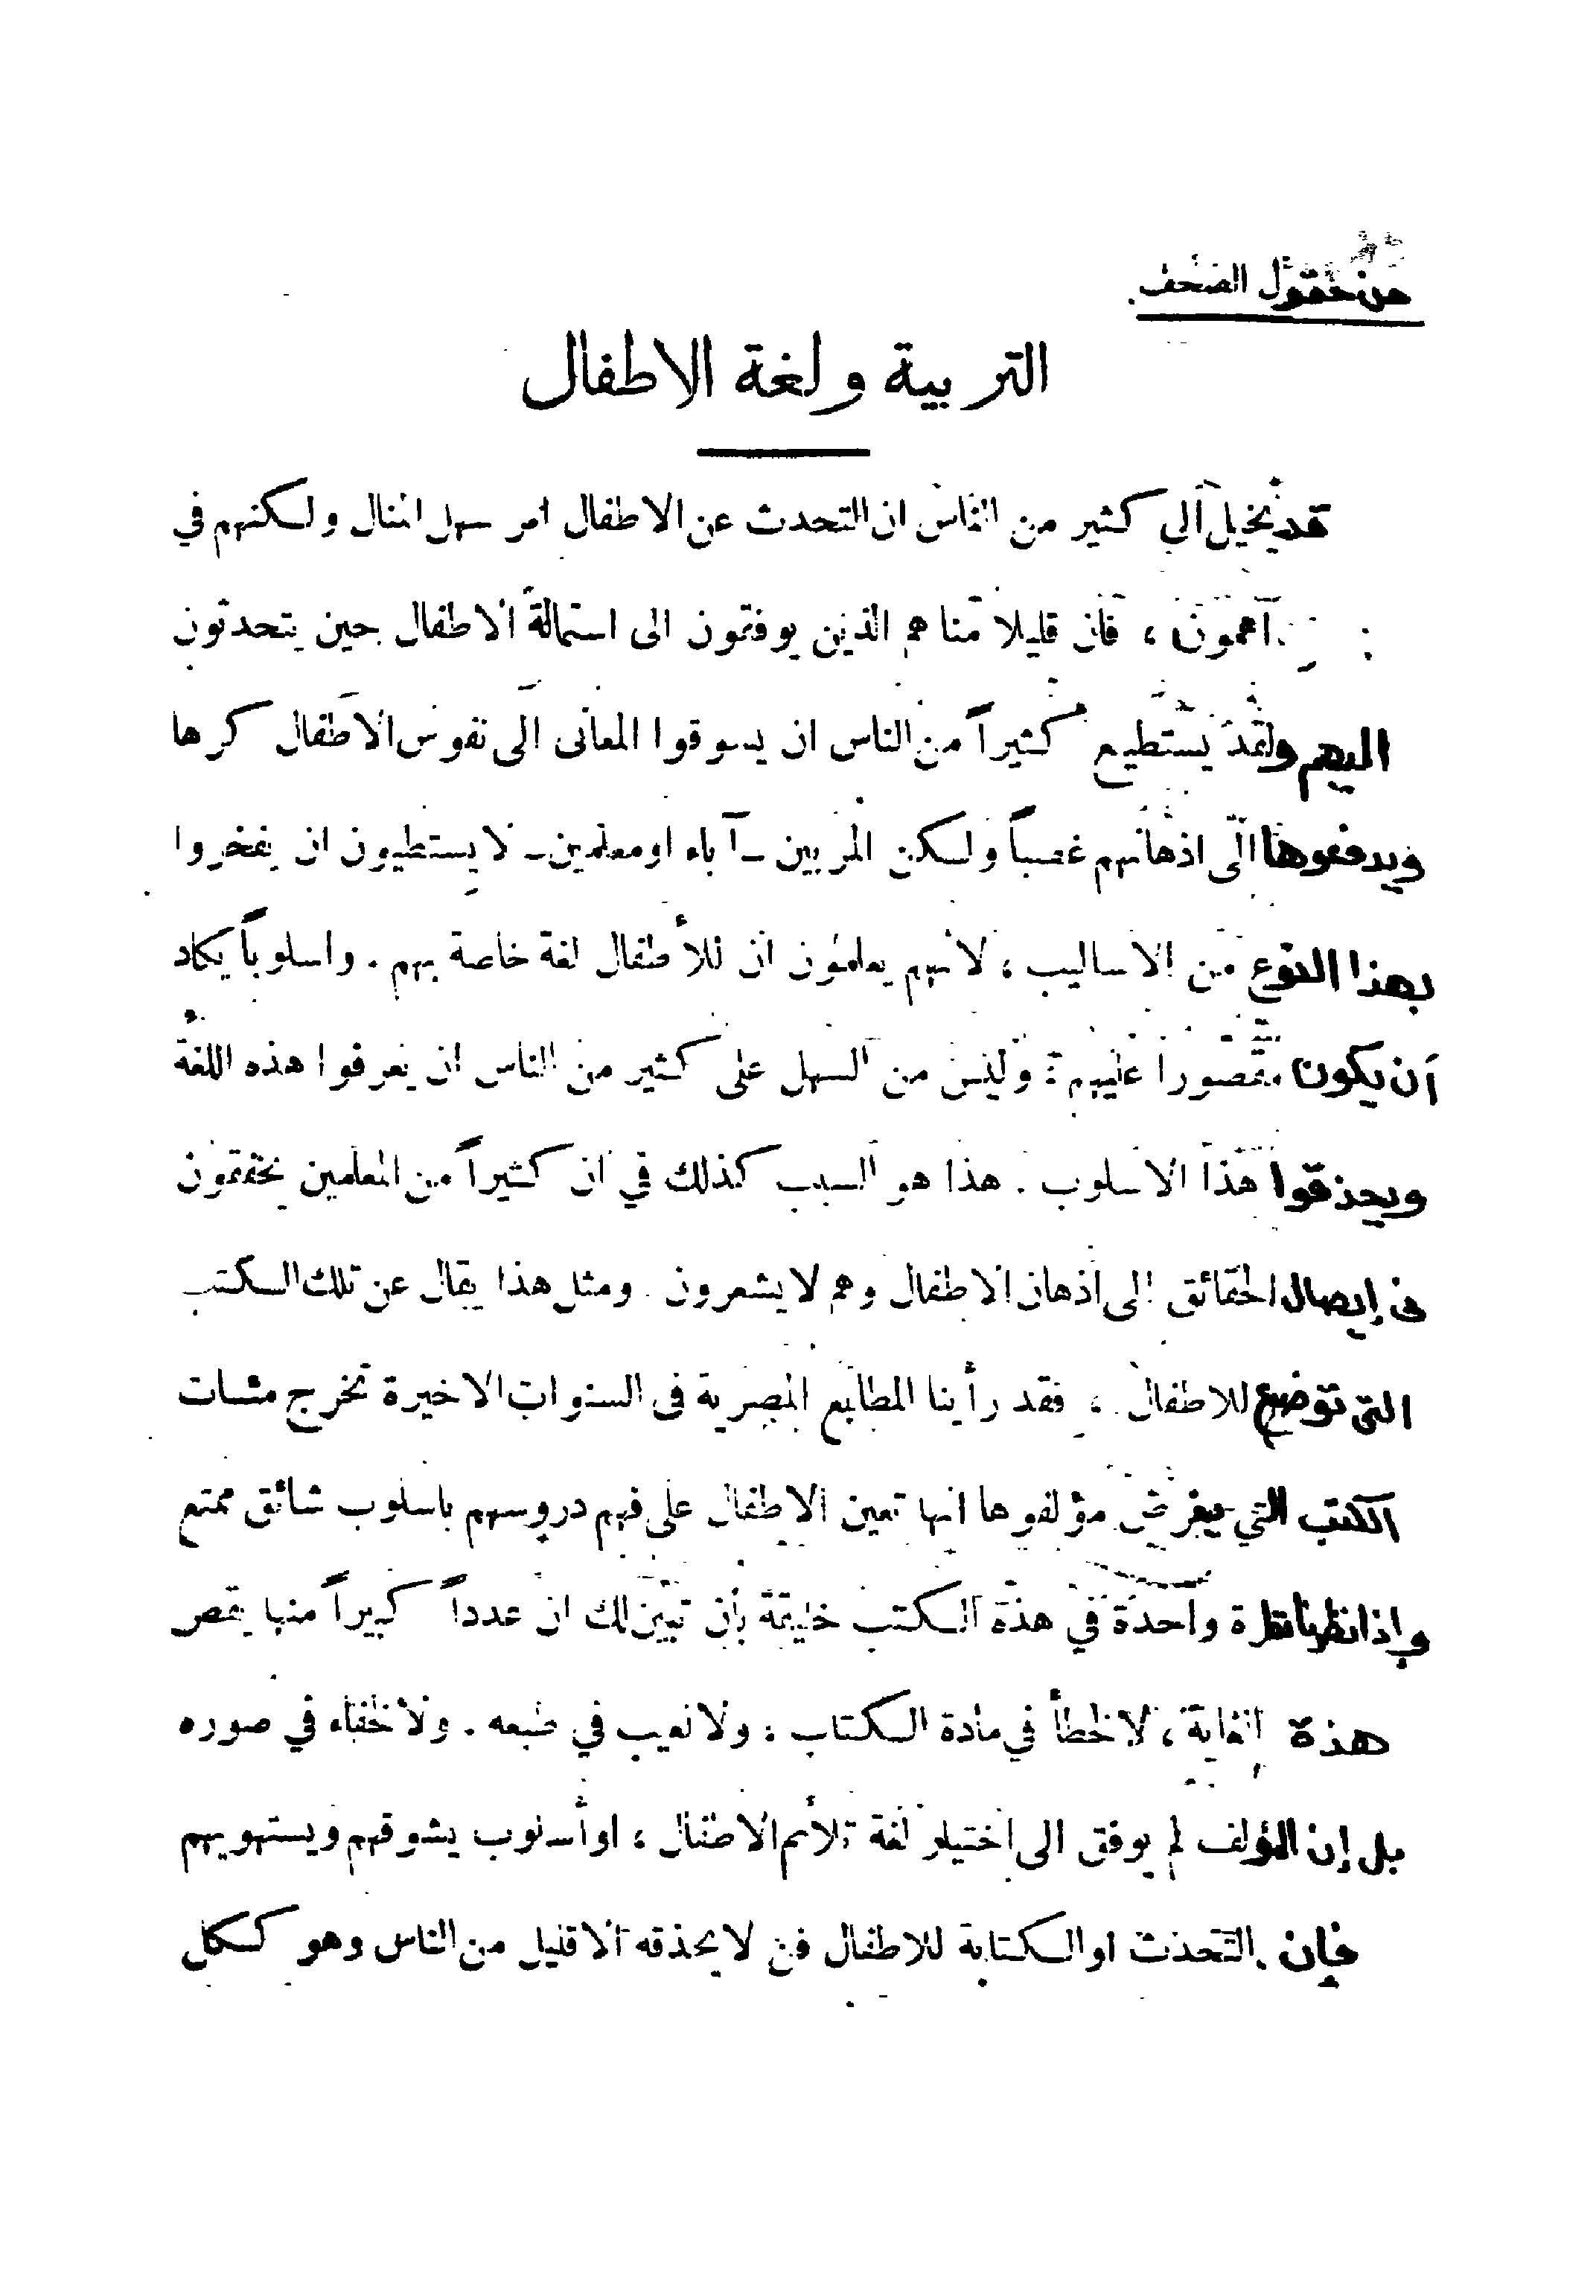 من حقول الصحف
التربية ولغة الاطفال
قد يخيل الى كثير من الناس ان التحدث عن الاطفال امر سهل المنال ولكنهم في
، فان قليلا منا هم الذين يوفقون الى استمالة الاطفال حين يتحدثون
اليهم ولقد يستطيع كثيراً من الناس ان يسوقوا المعانى الى نفوس الاطفال كرها
ويدفعوها الى اذهانهم غصباً ولكن المربين ــ آباء او معلمين ــ لا يستطيون ان يفخروا
بهذا النوع من الاساليب ، لانهم يعلمون ان للأطفال لغة خاصة بهم . واسلوباً يكاد
أن يكون مقصورا عليهم : وليس من السهل على كثير من الناس ان يعرفوا هذه اللغة
ويحذقوا هذا الاسلوب . هذا هو السبب كذلك في ان كثيراً من المعلمين يخفقون
فى إيصال الحقائق الى اذهان الاطفال وهم لا يشعرون . ومثل هذا يقال عن تلك الكتب
التى توضع للاطفال ، فقد رأينا المطابع المصرية فى السنوات الاخيرة تخرج مئات
الكتب التي يفرض مؤلفوها انها تعين الاطفال على فهم دروسهم باسلوب شائق ممتع
وإذا نظرنا نظرة واحدة في هذه الكتب خليقة بأن تبين لك ان عدداً كبيراً منها يقصر
هذه الغاية ، لا لخطأ في مادة الكتاب ، ولا لعيب في طبعه . ولا لخفاء في صوره
بل إن المؤلف لم يوفق الى اختيار لغة تلائم الاطفال ، او أسلوب يشوقهم ويستهويهم
فإن التحدث او الكتابة للاطفال فن لا يحذقه الا قليل من الناس وهو ككل